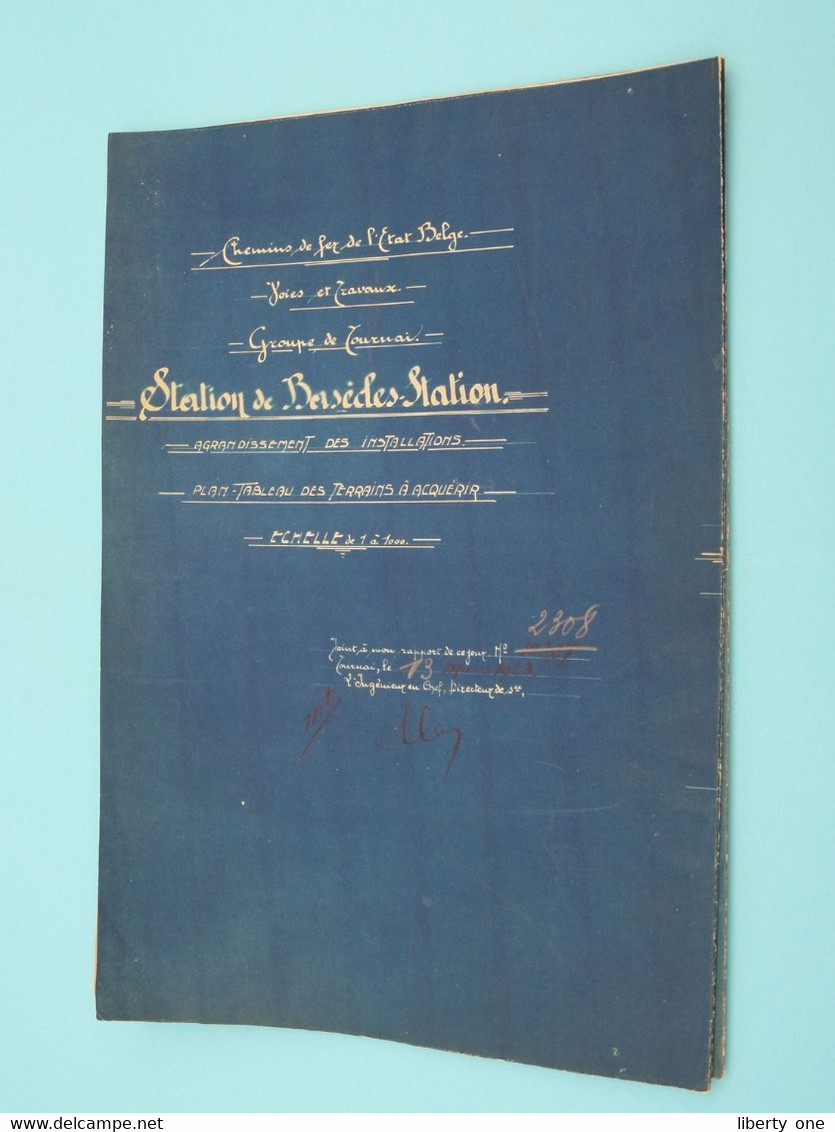 Chemins de fer de l'Etat Belge.
Voies et Travaux.
Groupe de Tournai.
Station de Basècles-Station.
AGRANDISSEMENT DES INSTALLATIONS.
PLAN-TABLEAU DES TERRAINS À ACQUÉRIR
ECHELLE de 1 à 1000.
2308
Joint à mon rapport de ce jour N°
Tournai, le 13 mars 1923
L'Ingénieur en Chef, Directeur de sce,
www.delcampe.net
liberty one